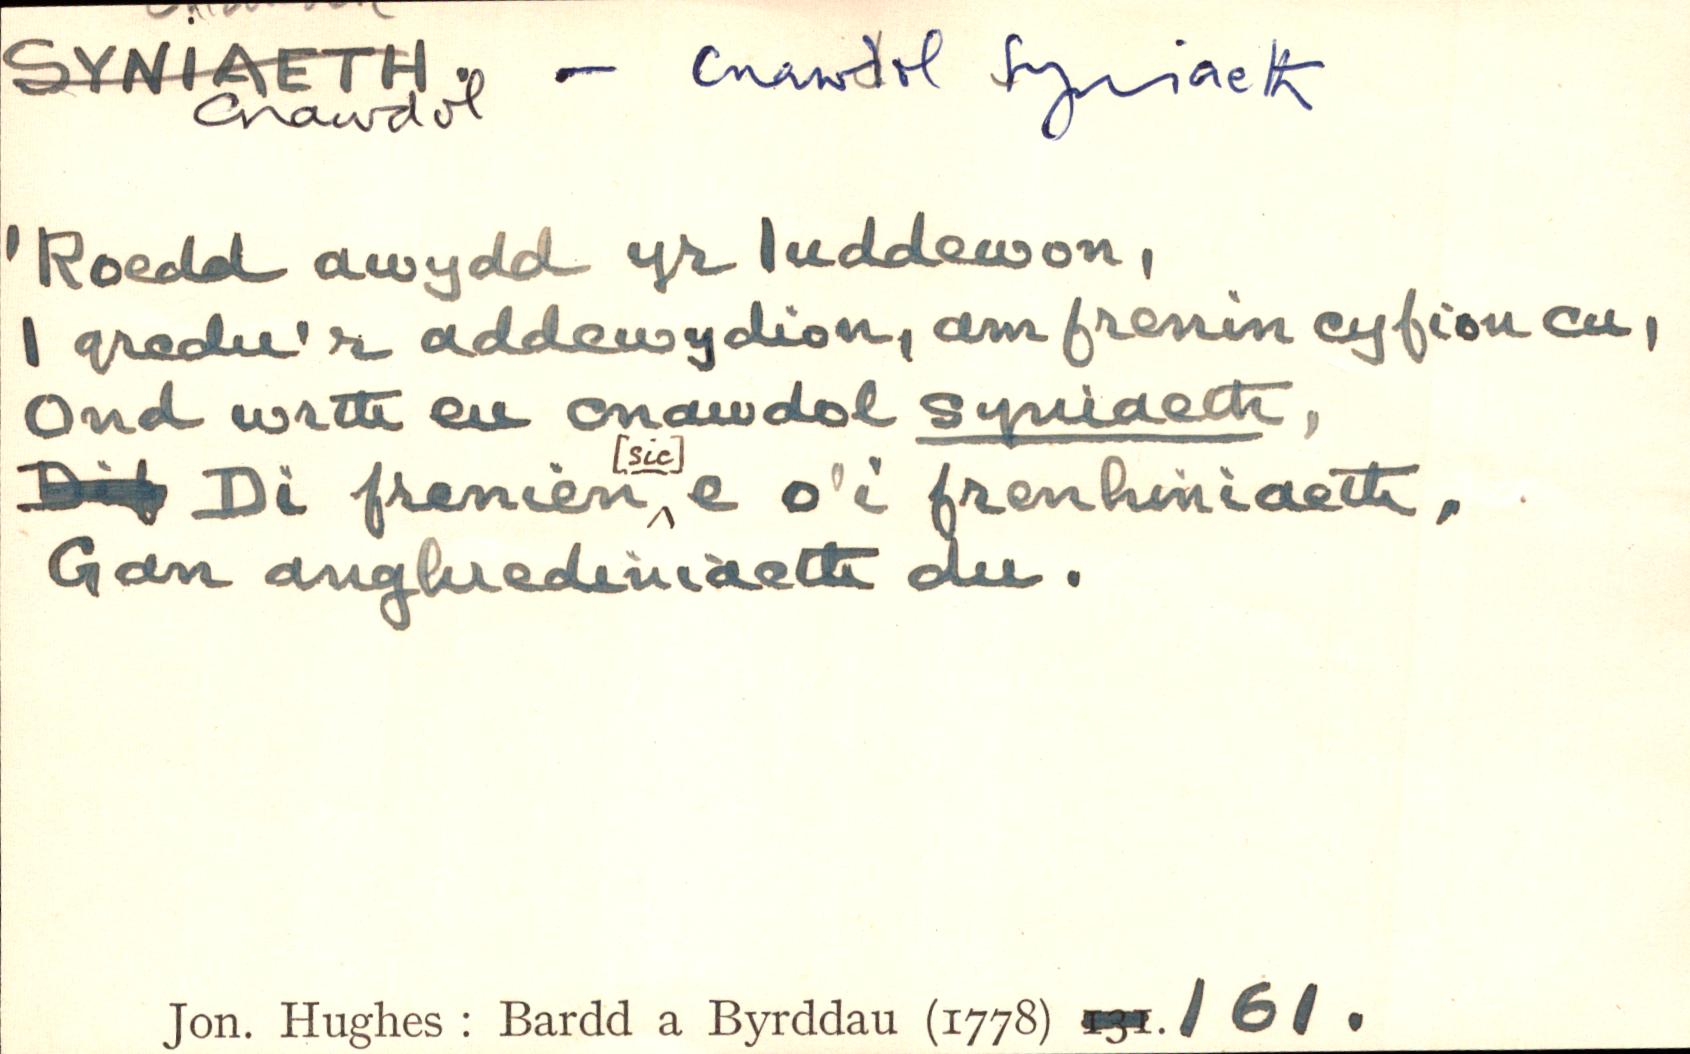 SYNIAETH. - Cnawdol Syniaeth
Cnawdol
'Roedd awydd yr Iuddewon,
I gredu'r addewydion, am frenin cyfion cu,
Ond wrth eu cnawdol syniaeth,
[sic]
Di frenien ^ e o'i frenhiniaeth.
Gan anghrediniaeth du.
Jon. Hughes : Bardd a Byrddau (1778) 131. 161.